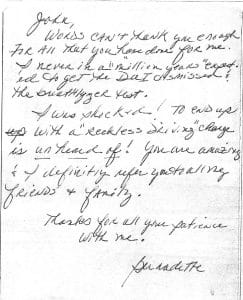 John,
Words can't thank you enough
for all that you have done for me.
I never in a "million years" expect-
ed to get the DUI dismissed &
the breathlyzer test.
I was shocked! To end up
up with a "reckless driving" charge
is un heard of! You are amazing
& I definitly refer you to all my
friends & family.
Thanks for all your patience
with me.
Bernadette